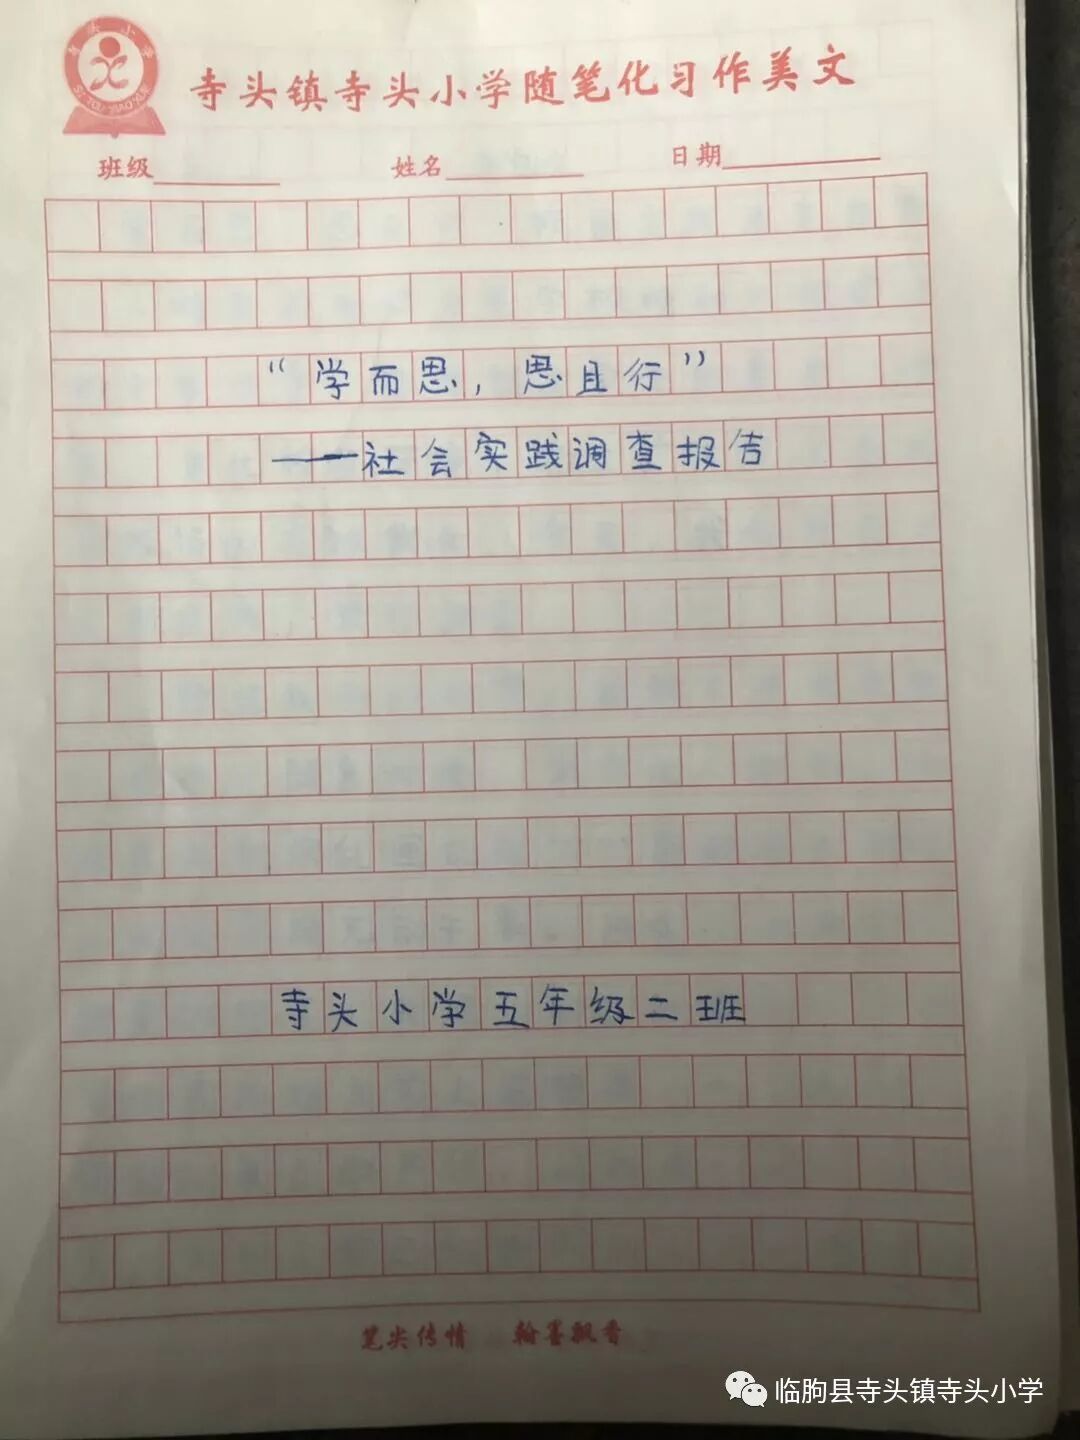 寺头小学
寺头镇寺头小学随笔化习作美文
班级 姓名 日期
“学而思，思且行”
——社会实践调查报告
寺头小学五年级二班
笔尖传情 翰墨飘香
临朐县寺头镇寺头小学